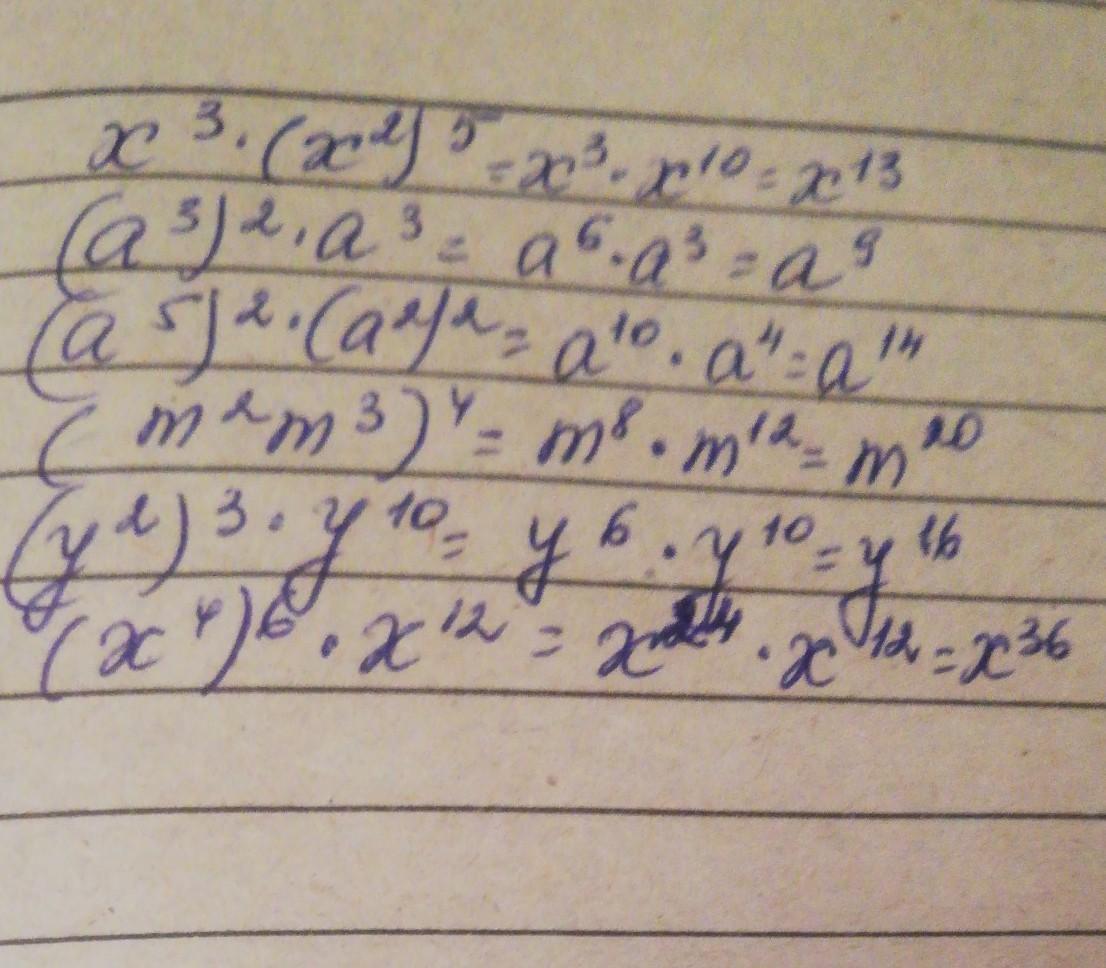 x³·(x²)⁵=x³·x¹⁰=x¹³
(a³)²·a³=a⁶·a³=a⁹
(a⁵)²·(a²)²=a¹⁰·a⁴=a¹⁴
(m²m³)⁴=m⁸·m¹²=m²⁰
(y²)³·y¹⁰=y⁶·y¹⁰=y¹⁶
(x⁴)⁶·x¹²=x²⁴·x¹²=x³⁶